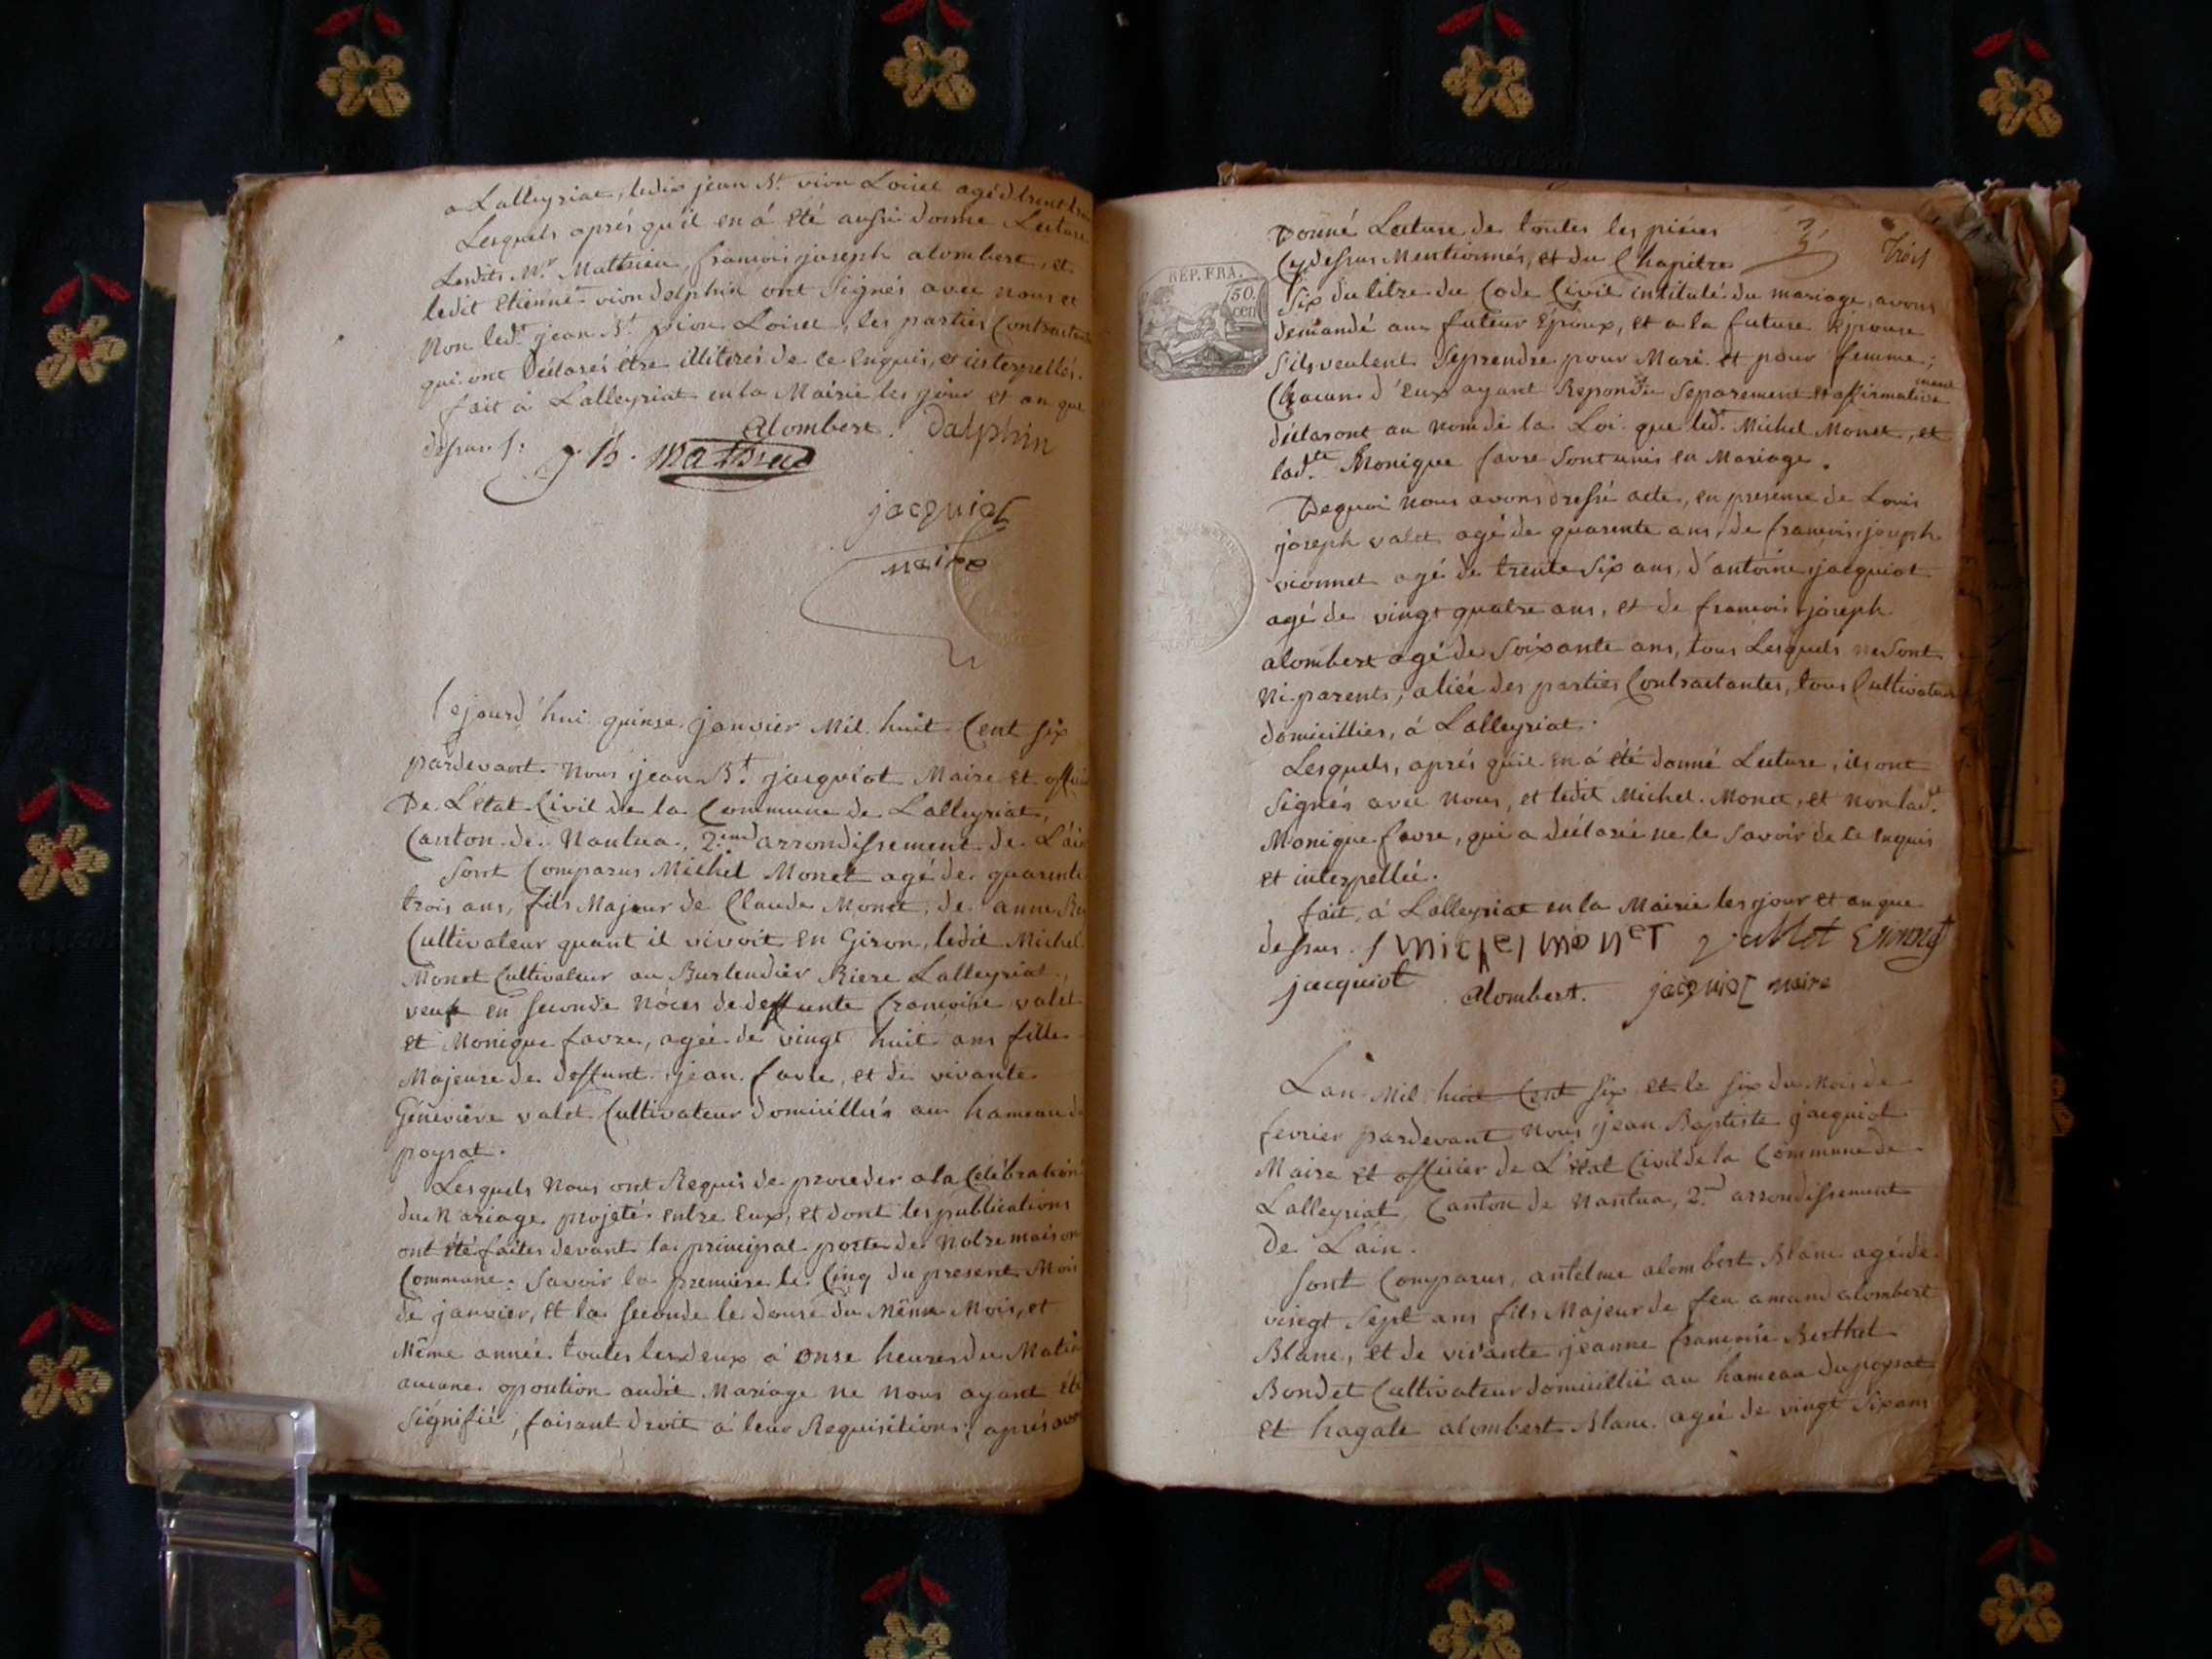 a Lalleyriat, ledit jean Bt. vion Loiset agé d trent trois
Lesquels aprés qu'il en á été aussi donné Lecture
Lesdits Mr. Mathieu, francois joseph alombert, et
ledit Etienne vion delphin ont Signés avec nous et
Non ledt. jean Bt. vion Loiset, les parties Contractantes
qui ont Déclarés être illiterés de ce Enquis, et interpellés.
fait á Lalleyriat en la Mairie les jour et an que
dessus /:
alombert. Dalphin
J B. Mathieu
jacquiot
maire
Cejourd'hui quinse janvier Mil huit Cent six
pardevant Nous jean Bt. jacquiot Maire et officier
De L'etat Civil de la Commune de Lalleyriat,
Canton de Nantua, 2.eme arrondissement de L'ain
Sont Comparus Michel Monet agé de quarente
trois ans, fils Majeur de Claude Monet, de anne
Cultivateur quant il vivoit en Giron, ledit Michel
Monet Cultivateur au Burlendier Riere Lalleyriat,
veuf en seconde nóces de deffunte francoise valet
et Monique favre, agée de vingt huit ans fille
Majeure de deffunt jean favre, et de vivante
Géneviève valet Cultivateur domicilliés au hameau de
poysat.
Lesquels Nous ont Requis de proceder a la Célébration
du Mariage projeté entre Eux, et dont les publications
ont été faites devant la principal porte de Notre maison
Commune: Savoir la première le Cinq du present Mois
de janvier, et la seconde le douse du Même Mois, et
Même année toutes les deux á onse heures du Matin
aucune oposition audit Mariage ne Nous ayant été
signifié, faisant droit á leur Requisitions; aprés avoir
3
Trois
REP. FRA.
50.
cen
Donné Lecture de toutes les piéces
Cy dessus Mentionnés, et du Chapitre
Six du litre du Code Civil intitulé du mariage, avons
demandé au futeur Epoux, et a la future Epouse
S'ils veulent Seprendre pour Mari et pour femme;
Chacun d'Eux ayant Repondu Separement et affirmativement
déclaront au nom de la Loi que ledt. Michel Monet, et
ladte. Monique favre Sont unis en Mariage.
Dequoi Nous avons dressé acte, en presence de Louis
joseph valet agé de quarente ans, de francois joseph
vionnet agé de trente Six ans, d'antoine jacquiot
agé de vingt quatre ans, et de francois joseph
alombert agé de Soixante ans, tous Lesquels ne Sont
Ni parents, aliée des parties Contractantes, tous Cultivateurs
domicilliés, á Lalleyriat.
Lesquels, aprés qu'il en á été donné Lecture, ils ont
Signés avec Nous, et ledit Michel Monet, et non ladt.
Monique favre, qui a déclaré ne le Savoir de ce Enquis
et interpellée.
fait, á Lalleyriat en la Mairie les jour et an que
dessus. / michel monet vallet vionnet
jacquiot alombert. jacquiot maire
L'an Mil huit Cent Six et le Six du Mois de
fevrier pardevant Nous jean Baptiste jacquiot
Maire et officier de L'état Civil de la Commune de
Lalleyriat, Canton de Nantua, 2.me arrondissement
De Lain.
Sont Comparus, antelme alombert Blanc agé de
vingt Sept ans fils Majeur de feu amand alombert
Blanc, et de vivante jeanne francoise Berthet
Bondet Cultivateur domicillié au hameau du poysat
et hagate alombert Blanc agée de vingt Six ans